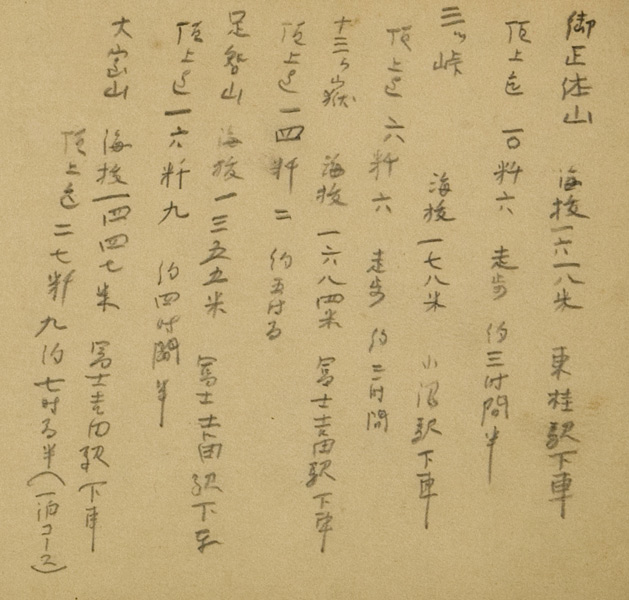 御正体山 海抜一六一八米 東桂駅下車
頂上迄 一〇粁六 走歩 約三时間半
三ッ峠 海抜一七八米 小沼駅下車
頂上迄 六粁六 走歩 約三时間
十三ヶ嶽 海抜 一六八四米 冨士吉田駅下車
頂上迄 一四粁二 約五时る
足智山 海抜 一三五五米 冨士吉田駅下車
頂上迄 一六粁九 約四时間半
大室山 海抜一四四七米 冨士吉田駅下車
頂上迄 二七粁九 約七时る半(一泊コース)